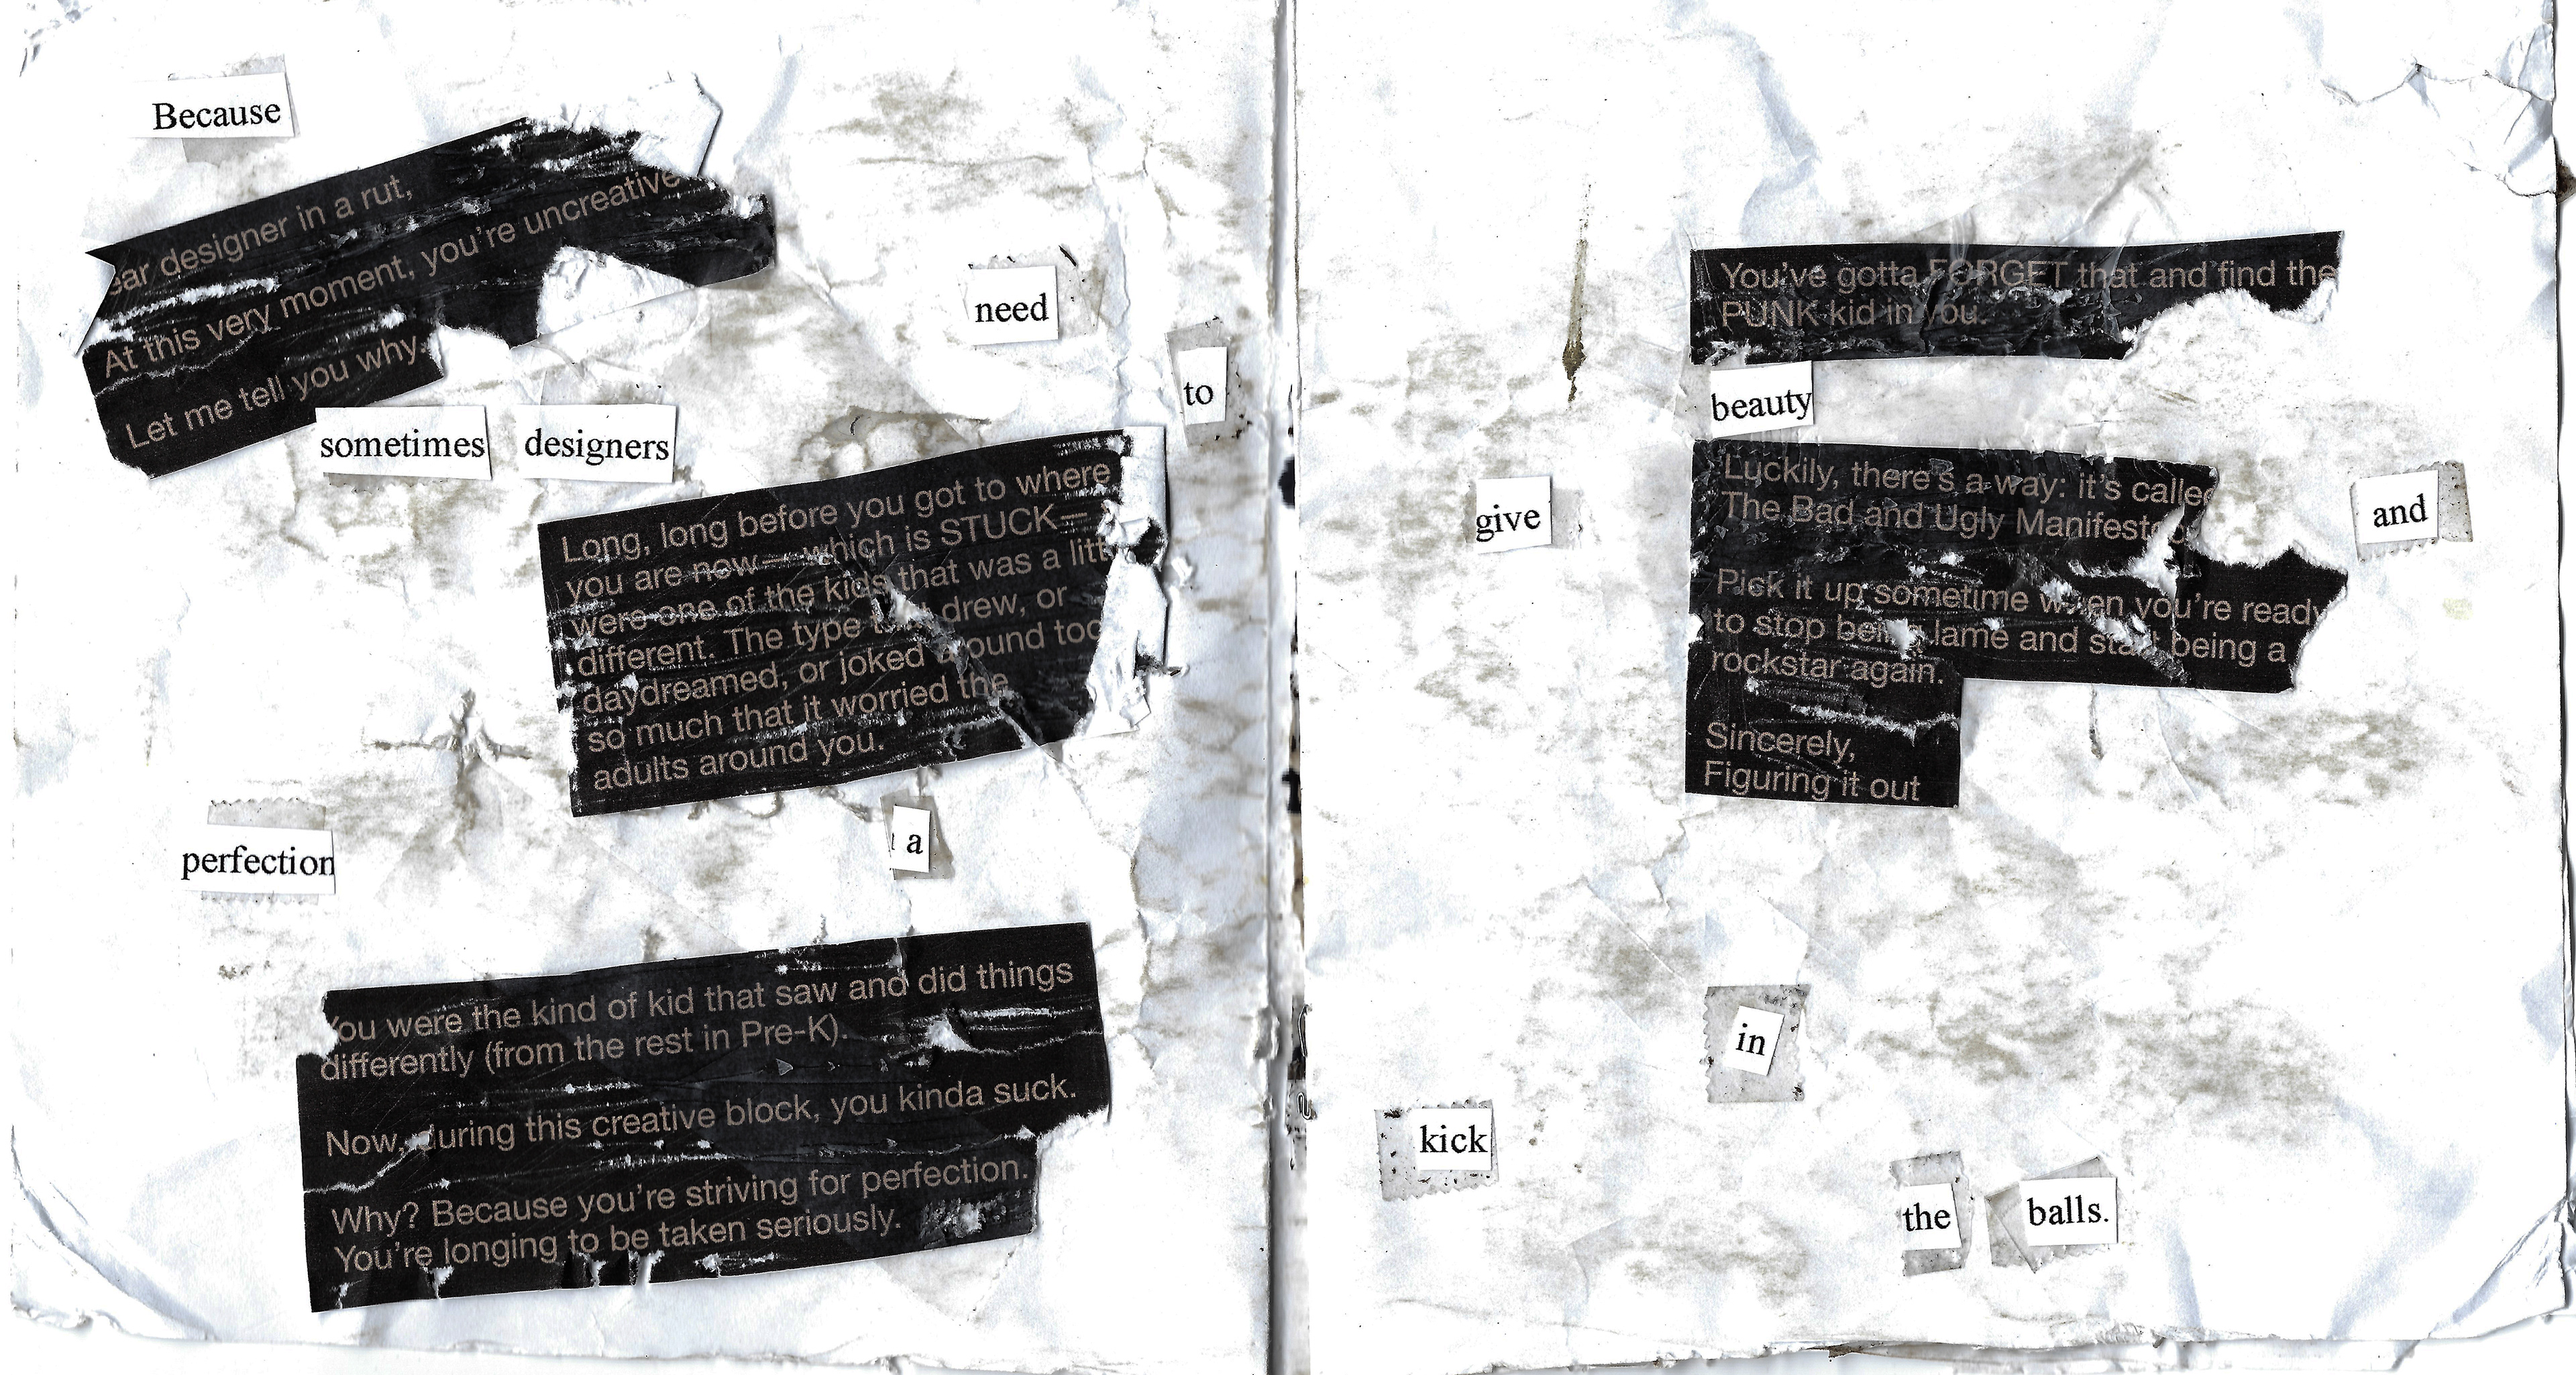 Because
ear designer in a rut,
At this very moment, you're uncreative
Let me tell you why.
sometimes designers
need
to
Long, long before you got to where
you are now—which is STUCK—
were one of the kids that was a litt
different. The type drew, or
daydreamed, or joked around too
so much that it worried the
adults around you.
perfection
a
You were the kind of kid that saw and did things
differently (from the rest in Pre-K).
Now, during this creative block, you kinda suck.
Why? Because you're striving for perfection.
You're longing to be taken seriously.
You've gotta FORGET that and find the
PUNK kid in you.
beauty
give
and
Luckily, there's a way: it's called
The Bad and Ugly Manifesto
Pick it up sometime when you're ready
to stop being lame and start being a
rockstar again.
Sincerely,
Figuring it out
in
kick
the
balls.